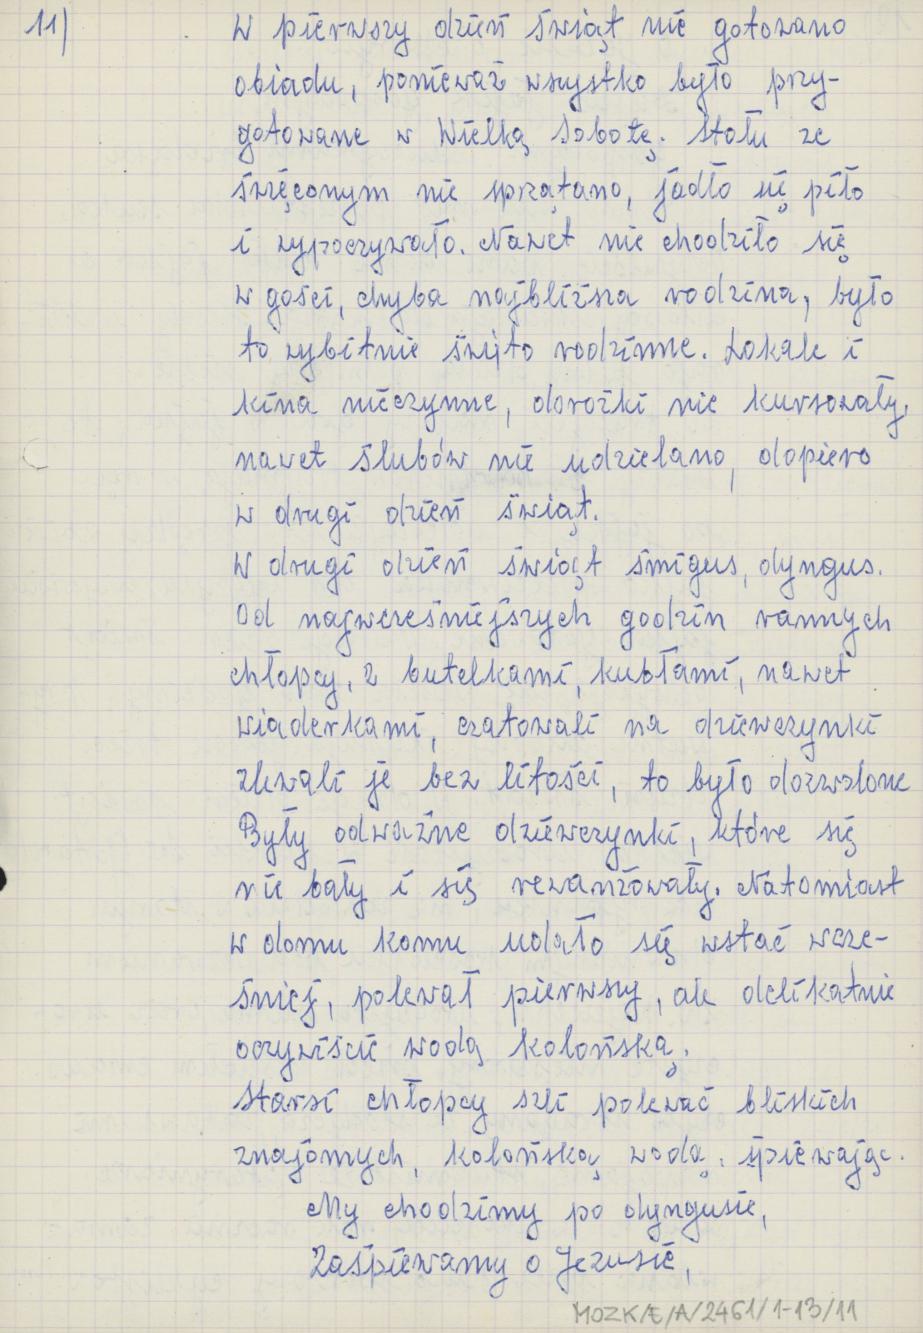 11)
W pierwszy dzień świąt nie gotowano
obiadu, ponieważ wszystko było przy-
gotowane w Wielką Sobotę. Stołu ze
święconym nie sprzątano, jadło się piło
i wypoczywało. Nawet nie chodziło się
w gości, chyba najbliższa rodzina, było
to wybitnie święto rodzinne. Lokale i
kina nieczynne, dorożki nie kursowały,
nawet ślubów nie udzielano, dopiero
w drugi dzień świąt.
W drugi dzień świąt śmigus, dyngus.
Od najwcześniejszych godzin rannych
chłopcy, z butelkami, kubłami, nawet
wiaderkami, czatowali na dziewczynki
zlewali je bez litości, to było dozwolone
Były odważne dziewczynki, które się
nie bały i się rewanżowały. Natomiast
w domu komu udało się wstać wcze-
śniej, polewał pierwszy, ale delikatnie
oczywiście wodą kolońską.
Starsi chłopcy szli polewać bliskich
znajomych, kolońską wodą, śpiewając.
My chodzimy po dyngusie,
Zaśpiewamy o Jezusie,
MOZK/E/A/2461/1-13/11